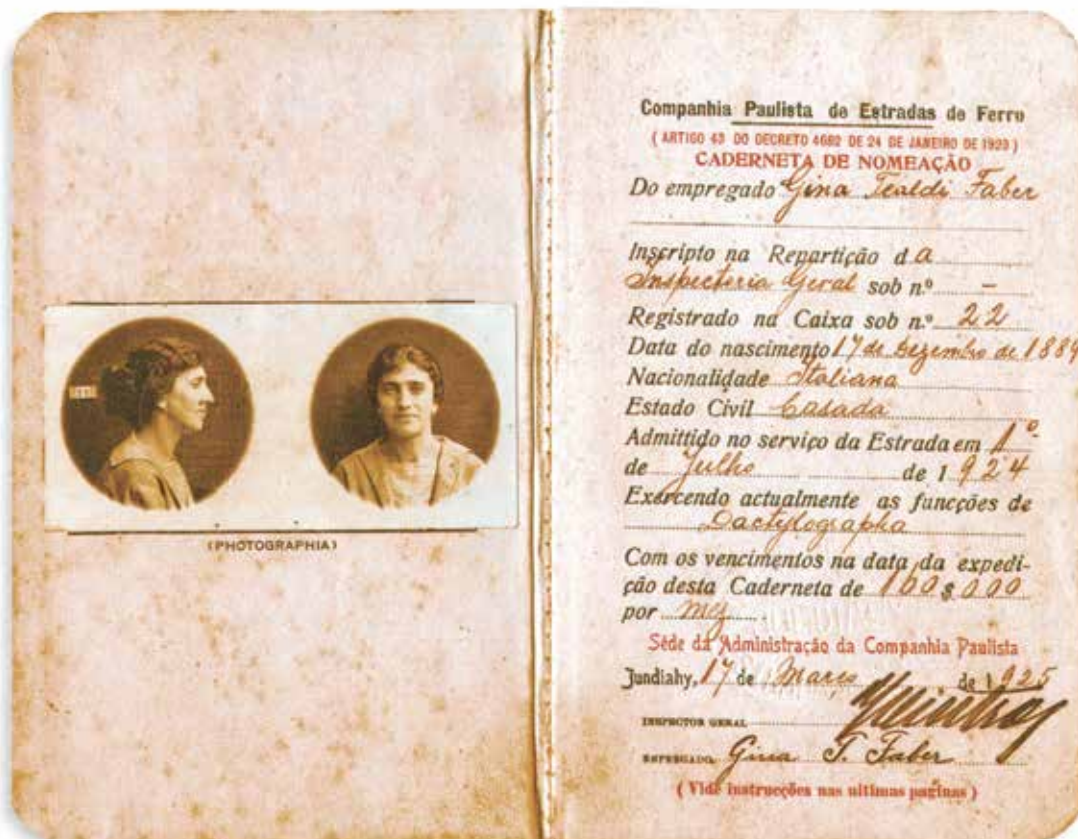 (PHOTOGRAPHIA)
Companhia Paulista de Estradas de Ferro
(ARTIGO 43 DO DECRETO 4682 DE 24 DE JANEIRO DE 1923)
CADERNETA DE NOMEAÇÃO
Do empregado Gina Tealdi Faber
Inscripto na Repartição da
Inspectoria Geral sob n.º -
Registrado na Caixa sob n.º 22
Data do nascimento 17 de dezembro de 1889
Nacionalidade Italiana
Estado Civil Casada
Admittido no serviço da Estrada em 1º
de Julho de 1924
Exercendo actualmente as funcções de
Dactylographa
Com os vencimentos na data da expedi-
ção desta Caderneta de 100$000
por mez
Séde da Administração da Companhia Paulista
Jundiahy, 17 de Março de 1925
INSPECTOR GERAL
EMPREGADO Gina T. Faber
(Vide instrucções nas ultimas paginas)